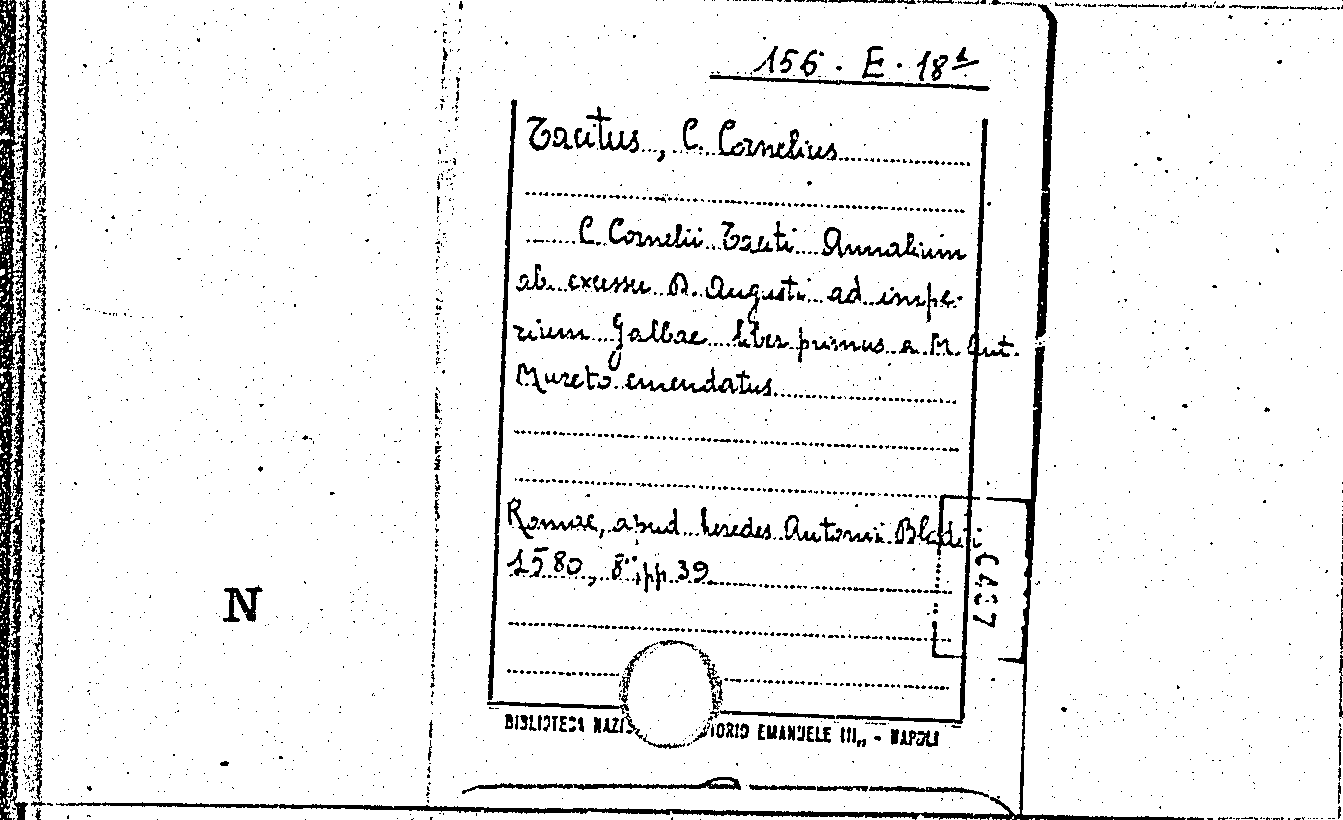 156. E. 18¹
Tacitus, C. Cornelius
C. Cornelii Taciti Annalium
ab excessu D. Augusti ad impe-
rium Galbae liber primus a M. Ant.
Mureto emendatus
Romae, apud heredes Antonii Bladii
1580, 8°, pp 39
N
BIBLIOTECA NAZI ORIO EMANUELE III„ - NAPOLI